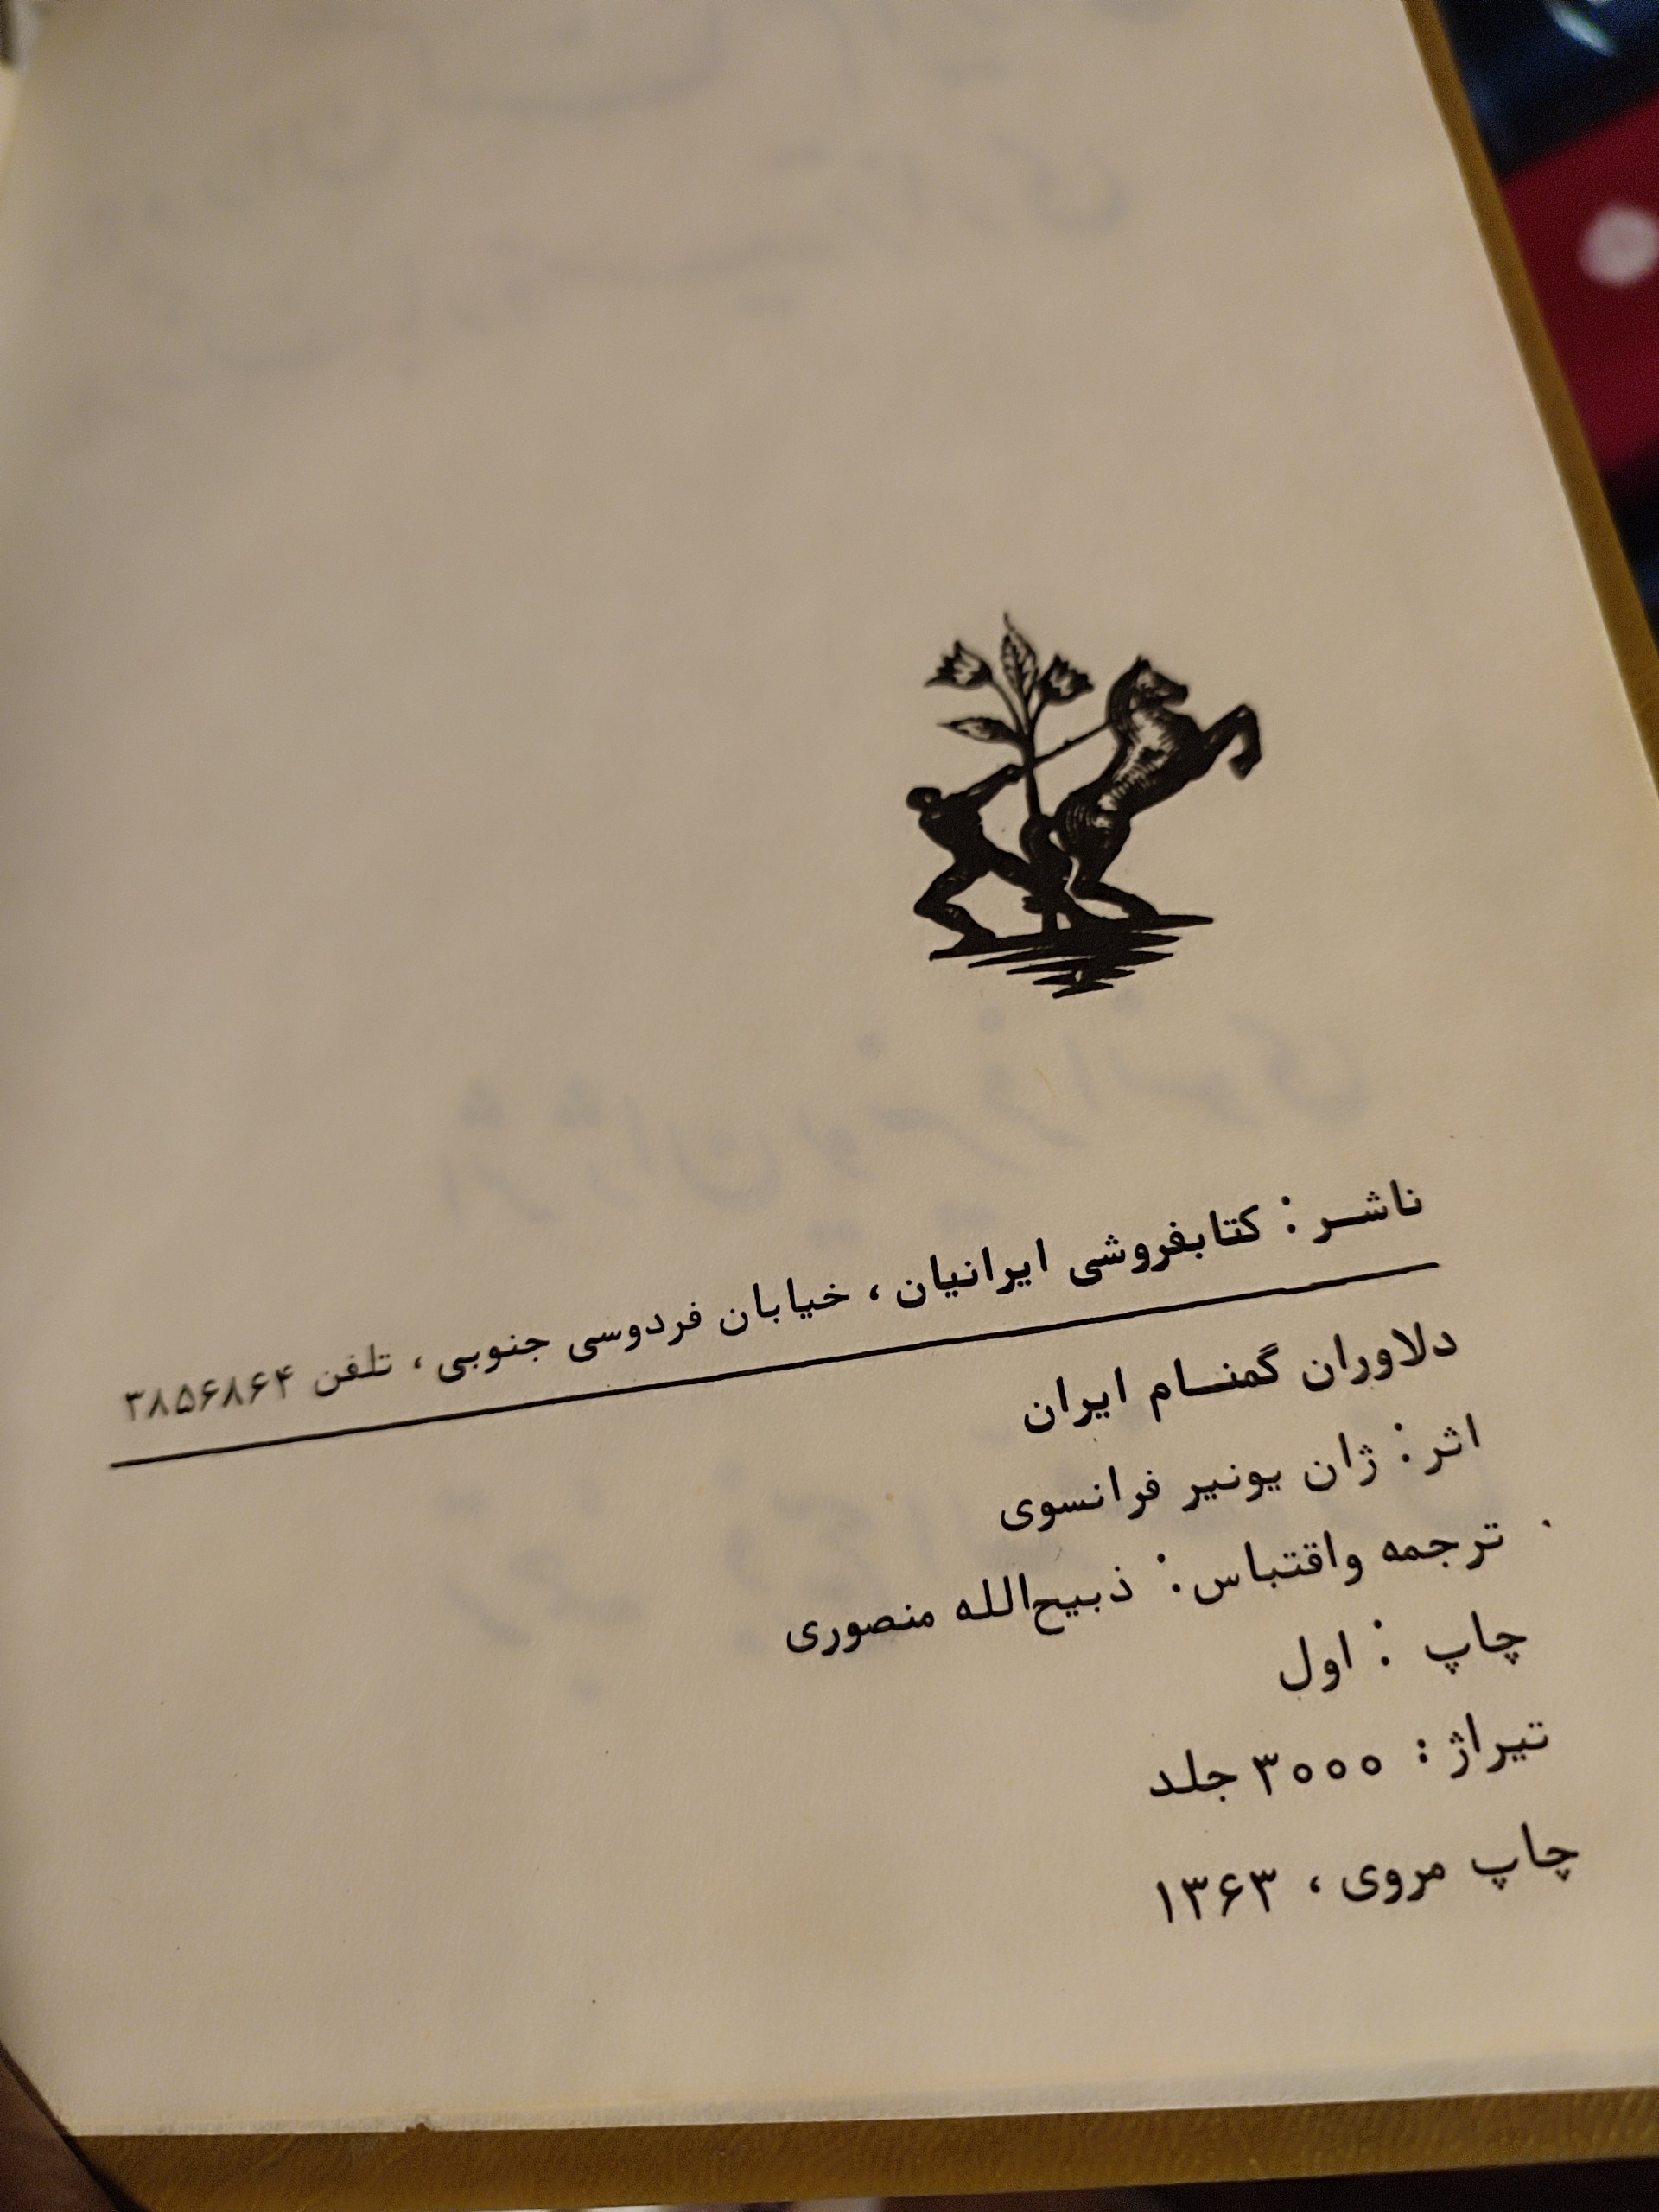 ناشر : کتابفروشی ایرانیان ، خیابان فردوسی جنوبی ، تلفن ۳۸۵۶۸۶۴
دلاوران گمنام ایران
اثر : ژان یونیر فرانسوی
ترجمه واقتباس : ذبیح‌الله منصوری
چاپ : اول
تیراژ : ۳۰۰۰ جلد
چاپ مروی ، ۱۳۶۳